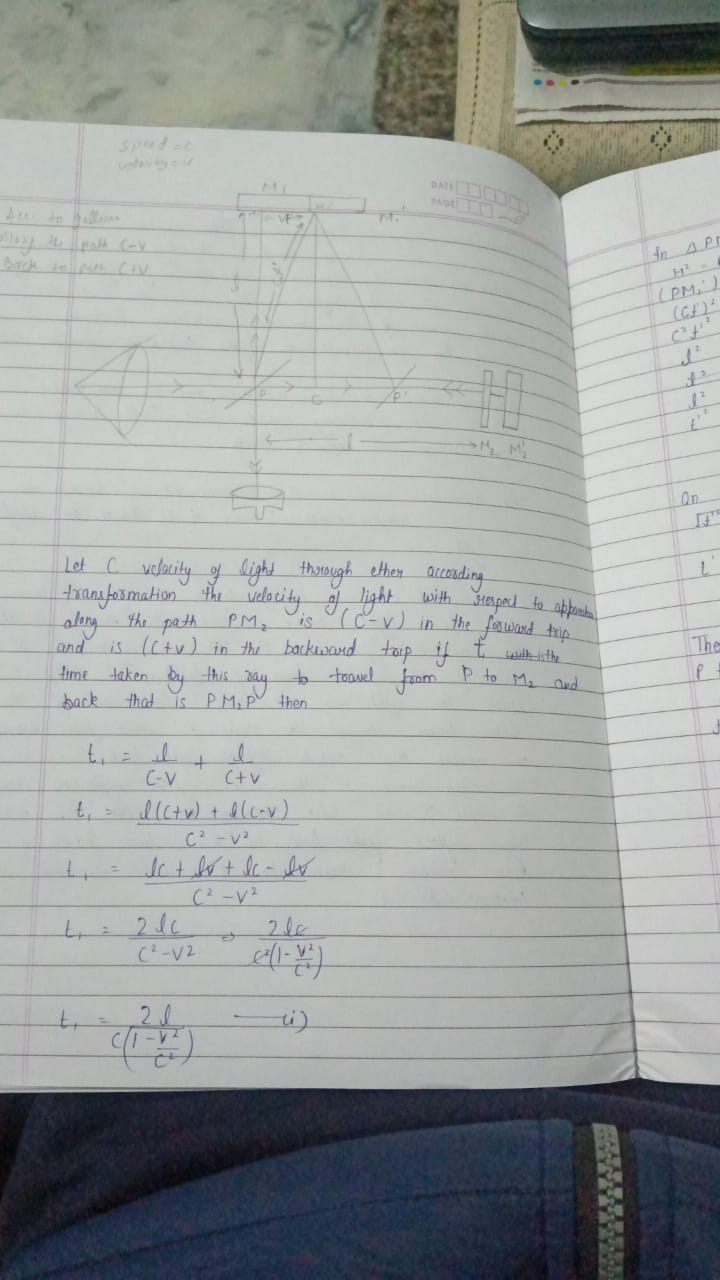 speed = c
velocity = v
DATE
PAGE
M₁
M₁'
Acc to
Along the path C-V
Back to path C+V
P
C
P'
l
M₂ M₂'
Let C velocity of light through ether according
transformation the velocity of light with respect to apparatus
along the path PM₂ is (C-V) in the forward trip
and is (C+V) in the backward trip if t is the
time taken by this ray to travel from P to M₂ and
back that is PM₂P then
t₁ = l/(C-V) + l/(C+V)
t₁ = (l(C+v) + l(C-v))/(C² - V²)
t₁ = (lc + lv + lc - lv)/(C² - V²)
t₁ = 2lc/(C² - V²) ⇒ 2lc/(c²(1 - V²/C²))
t₁ = 2l/(C(1 - V²/C²)) —(i)
In Δ
(PM₁')
(Ct')²
C²t'²
l²
l²
l²
t'²
On
The
P